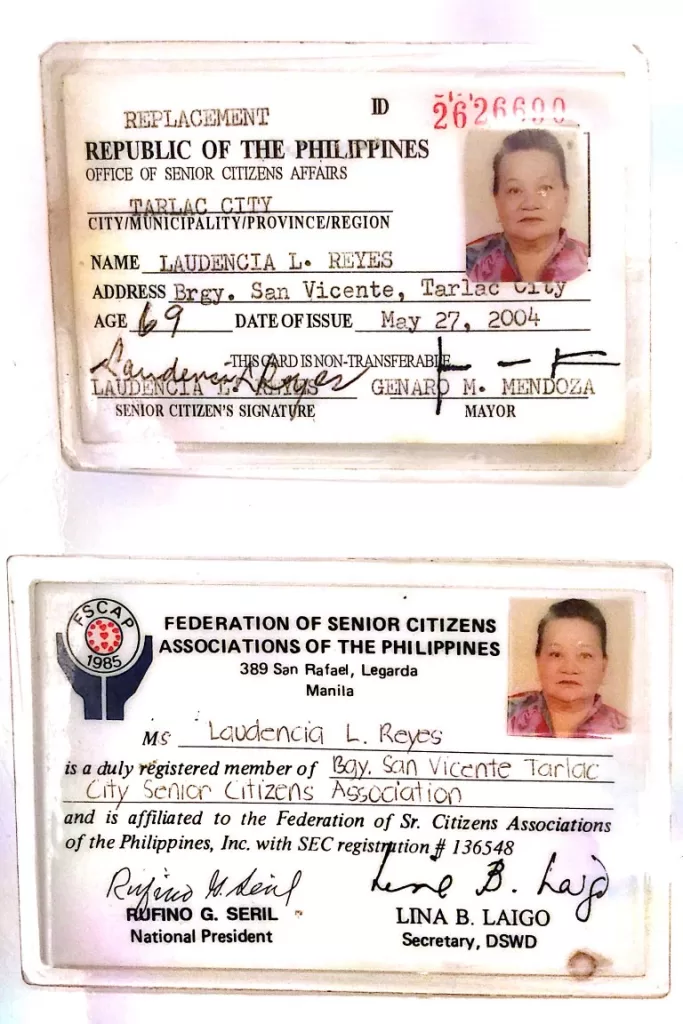 REPLACEMENT
ID 2626690
REPUBLIC OF THE PHILIPPINES
OFFICE OF SENIOR CITIZENS AFFAIRS
TARLAC CITY
CITY/MUNICIPALITY/PROVINCE/REGION
NAME LAUDENCIA L. REYES
ADDRESS Brgy. San Vicente, Tarlac City
AGE 69 DATE OF ISSUE May 27, 2004
-THIS CARD IS NON-TRANSFERABLE
Laudencia L. Reyes
LAUDENCIA L. REYES GENARO M. MENDOZA
SENIOR CITIZEN'S SIGNATURE MAYOR
FSCAP
1985
FEDERATION OF SENIOR CITIZENS
ASSOCIATIONS OF THE PHILIPPINES
389 San Rafael, Legarda
Manila
MS Laudencia L. Reyes
is a duly registered member of Bgy. San Vicente Tarlac
City Senior Citizens Association
and is affiliated to the Federation of Sr. Citizens Associations
of the Philippines, Inc. with SEC registration # 136548
Rufino G. Seril Lina B. Laigo
RUFINO G. SERIL LINA B. LAIGO
National President Secretary, DSWD